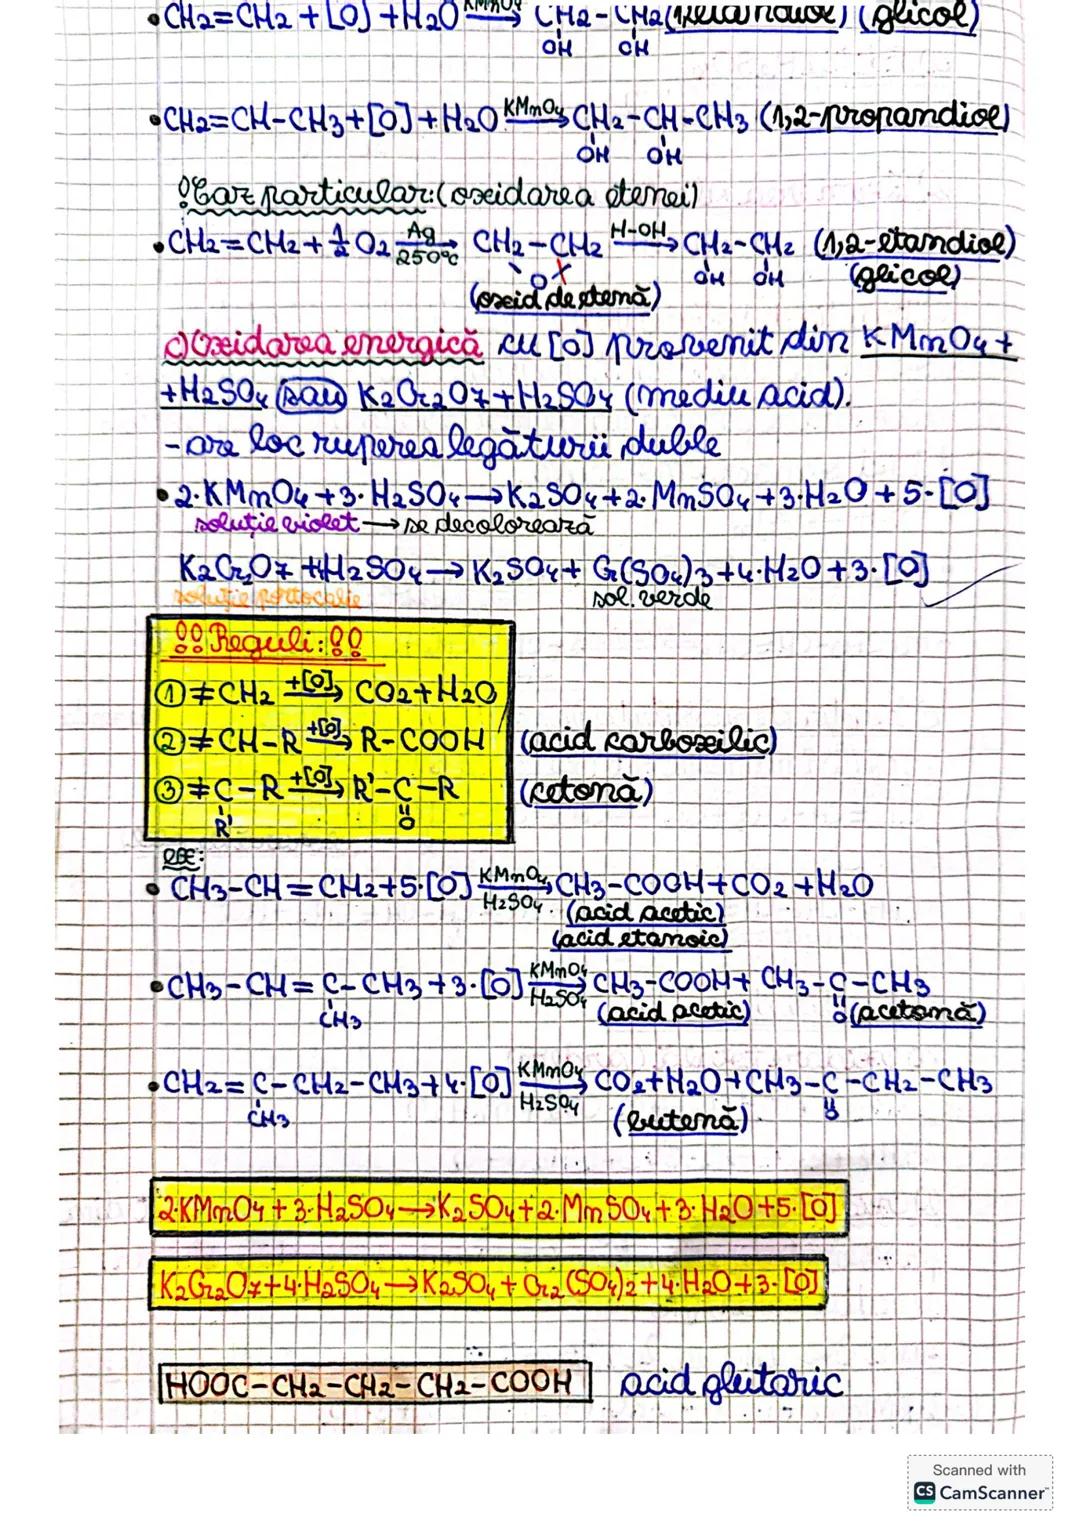 •CH2=CH2+[O]+H2O KMnO4→ CH2-CH2 (glicol)
OH OH
•CH2=CH-CH3+[O]+H2O KMnO4→ CH2-CH-CH3 (1,2-propandiol)
OH OH
!Caz particular:(oxidarea etenei)
•CH2=CH2+½O2 Ag 250°C→ CH2-CH2 H-OH→ CH2-CH2 (1,2-etandiol)
O OH OH (glicol)
(oxid de etenă)
c)Oxidarea energică cu [O] provenit din KMnO4+
+H2SO4 sau K2Cr2O7+H2SO4 (mediu acid).
- are loc ruperea legăturii duble
•2·KMnO4+3·H2SO4→K2SO4+2·MnSO4+3·H2O+5·[O]
soluție violet→se decolorează
K2Cr2O7+4H2SO4→K2SO4+Cr(SO4)3+4·H2O+3·[O]
soluție portocalie sol. verde
!!Reguli:!!
①≠CH2 +[O]→ CO2+H2O
②≠CH-R +[O]→ R-COOH (acid carboxilic)
③≠C-R +[O]→ R'-C-R (cetonă)
R' O
•CH3-CH=CH2+5·[O] KMnO4 H2SO4→ CH3-COOH+CO2+H2O
(acid acetic)
(acid etanoic)
•CH3-CH=C-CH3+3·[O] KMnO4 H2SO4→ CH3-COOH+CH3-C-CH3
CH3 (acid acetic) O (acetonă)
•CH2=C-CH2-CH3+4·[O] KMnO4 H2SO4→ CO2+H2O+CH3-C-CH2-CH3
CH3 (butenă) O
2·KMnO4+3·H2SO4→K2SO4+2·MnSO4+3·H2O+5·[O]
K2Cr2O7+4·H2SO4→K2SO4+Cr2(SO4)2+4·H2O+3·[O]
HOOC-CH2-CH2-CH2-COOH acid glutaric
Scanned with
CS CamScanner